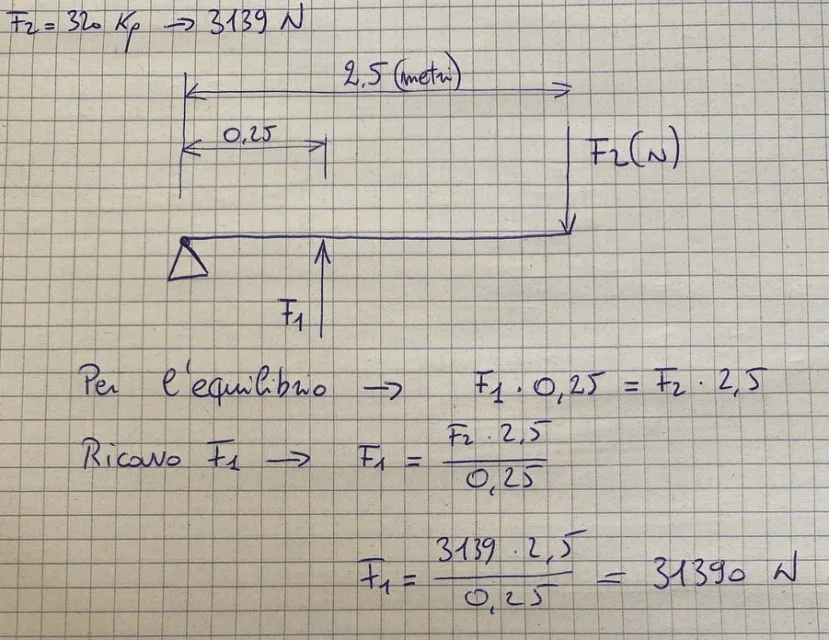 F2 = 320 Kp → 3139 N
2,5 (metri)
0,25
F2 (N)
F1
Per l'equilibrio → F1 · 0,25 = F2 · 2,5
Ricavo F1 → F1 = F2 · 2,5 / 0,25
F1 = 3139 · 2,5 / 0,25 = 31390 N